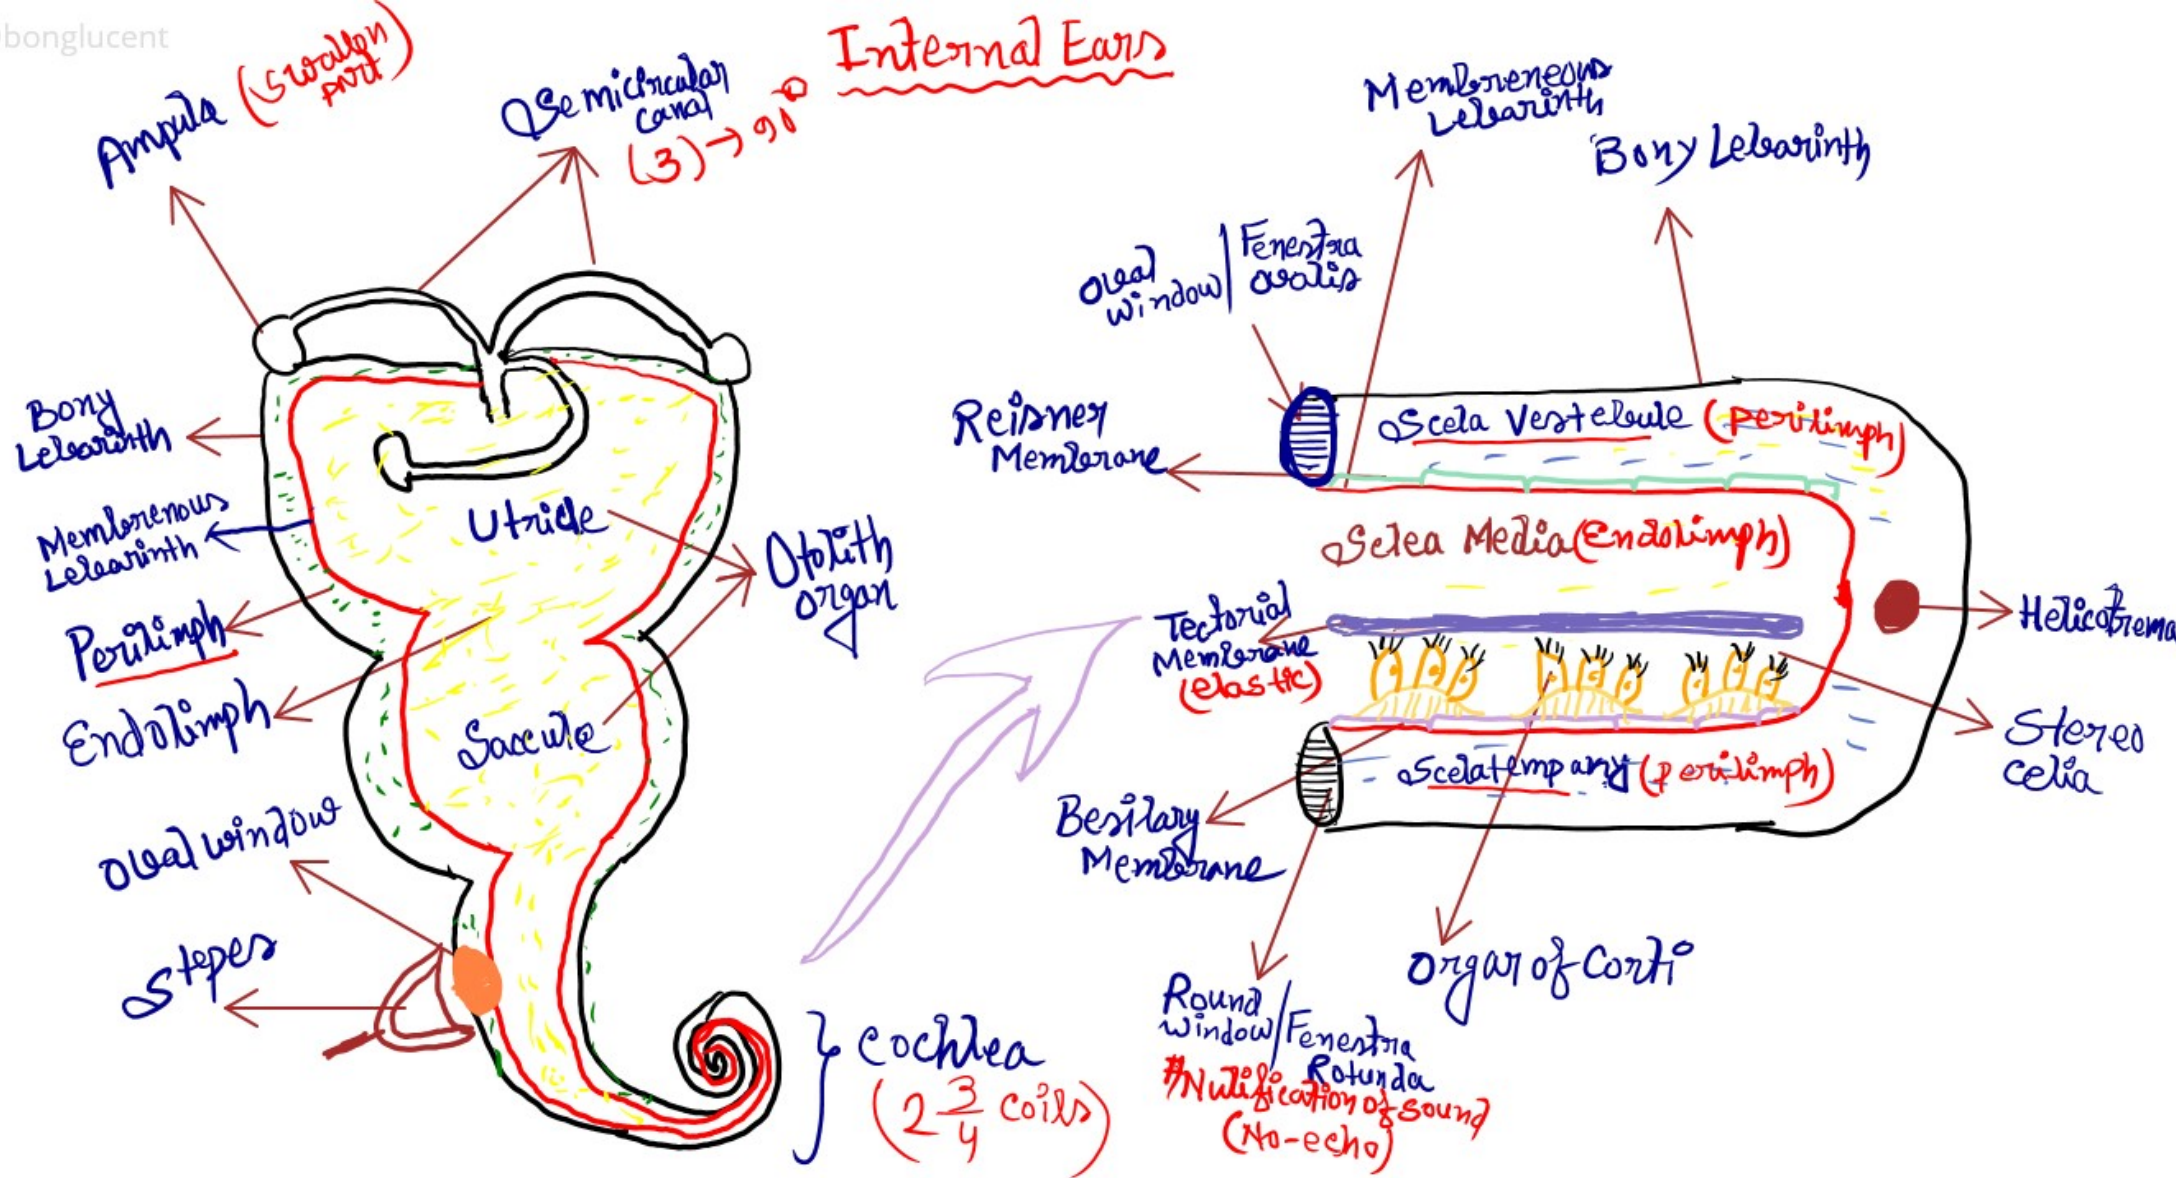 bonglucent
Internal Ears
Ampula (swallen
part)
Semicircular
canal
(3) → 90°
Bony
Lebarinth
Membrenous
Lebarinth
Perilimph
Endolimph
Oval window
Stepes
Utricle
Saccule
Otolith
organ
Cochlea
(2 3/4 coils)
Membreneous
Lebarinth
Bony Lebarinth
Oval
window / Fenestra
ovalis
Reisner
Membrane
Scela Vestebule (perilimph)
Sclea Media (Endolimph)
Tectorial
Membrane
(elastic)
Helicotrema
Stereo
celia
Scelatempany (perilimph)
Besilary
Membrane
Organ of Corti
Round
window / Fenestra
Rotunda
#Nulification of sound
(No-echo)